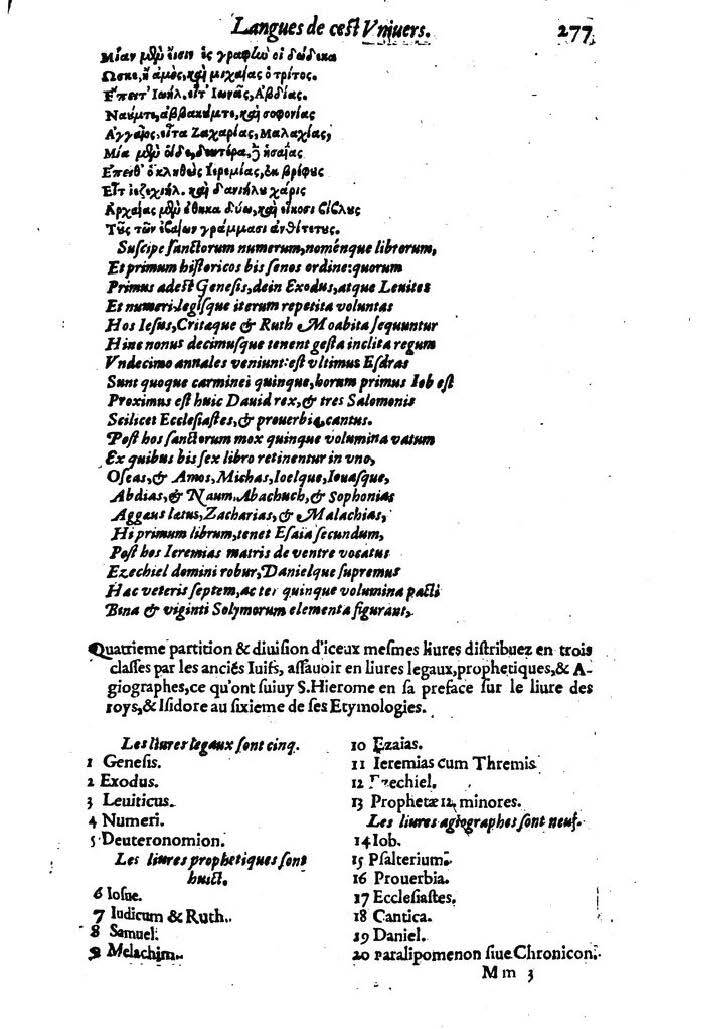 Langues de cest Vniuers. 277
Μίαν μὲν εἴσιν ἐς γραφὴν οἱ δώδεκα
Ωσηὲ, ἢ ἀμὸς, καὶ μιχαίας ὁ τρίτος.
Ἔπειτ' Ἰωὴλ, εἶτ' Ἰωνᾶς, Ἀβδίας.
Ναούμτε, ἀββακούμτε, καὶ σοφονίας
Αγγαῖος, εἶτα Ζαχαρίας, Μαλαχίας,
Μία μὲν οἵδε, δευτέρα, ἢ ἡσαΐας
Επειθ' ὁ κληθεὶς Ιερεμίας, ἐκ βρέφους
Εἶτ' ἰεζεχιὴλ, καὶ δανιήλου χάρις
Ἀρχαίας μὲν ἔθηκα δύω, καὶ εἴκοσι βίβλους
Τῆς τῶν ἑβραίων γράμμασι ἀνθέτους.
Suscipe sanctorum numerum, noménque librorum,
Et primum historicos bis senos ordine: quorum
Primus adest Genesis, dein Exodus, atque Leuites
Et numeri, legisque iterum repetita voluntas
Hos Iesus, Critaque & Ruth Moabita sequuntur
Hinc nonus decimusque tenent gesta inclita regum
Vndecimo annales veniunt: est vltimus Esdras
Sunt quoque carminei quinque, horum primus Iob est
Proximus est huic Dauid rex, & tres Salomonis
Scilicet Ecclesiastes, & prouerbia, cantus.
Post hos sanctorum mox quinque volumina vatum
Ex quibus bis sex libro retinentur in vno,
Oseas, & Amos, Michas, Ioelque, Iouasque,
Abdias, & Naum, Abachuch, & Sophonias
Aggæus lætus, Zacharias, & Malachias,
Hi primum librum, tenet Esaia secundum,
Post hos Ieremias matris de ventre vocatus
Ezechiel domini robur, Danielque supremus
Hac veteris septem, ac ter quinque volumina pacti
Bina & viginti Solymorum elementa figurant,
Quatrieme partition & diuision d'iceux mesmes liures distribuez en trois
classes par les anciés Iuifs, assauoir en liures legaux, prophetiques, & A-
giographes, ce qu'ont suiuy S. Hierome en sa preface sur le liure des
roys, & Isidore au sixieme de ses Etymologies.
Les liures legaux sont cinq.
1 Genesis.
2 Exodus.
3 Leuiticus.
4 Numeri.
5 Deuteronomion.
Les liures prophetiques sont
huict.
6 Iosue.
7 Iudicum & Ruth.
8 Samuel.
9 Melachim.
10 Ezaias.
11 Ieremias cum Threnis
12 Ezechiel.
13 Prophetæ 12. minores.
Les liures agiographes sont neuf.
14 Iob.
15 Psalterium.
16 Prouerbia.
17 Ecclesiastes.
18 Cantica.
19 Daniel.
20 Paralipomenon siue Chronicon.
Mm 3